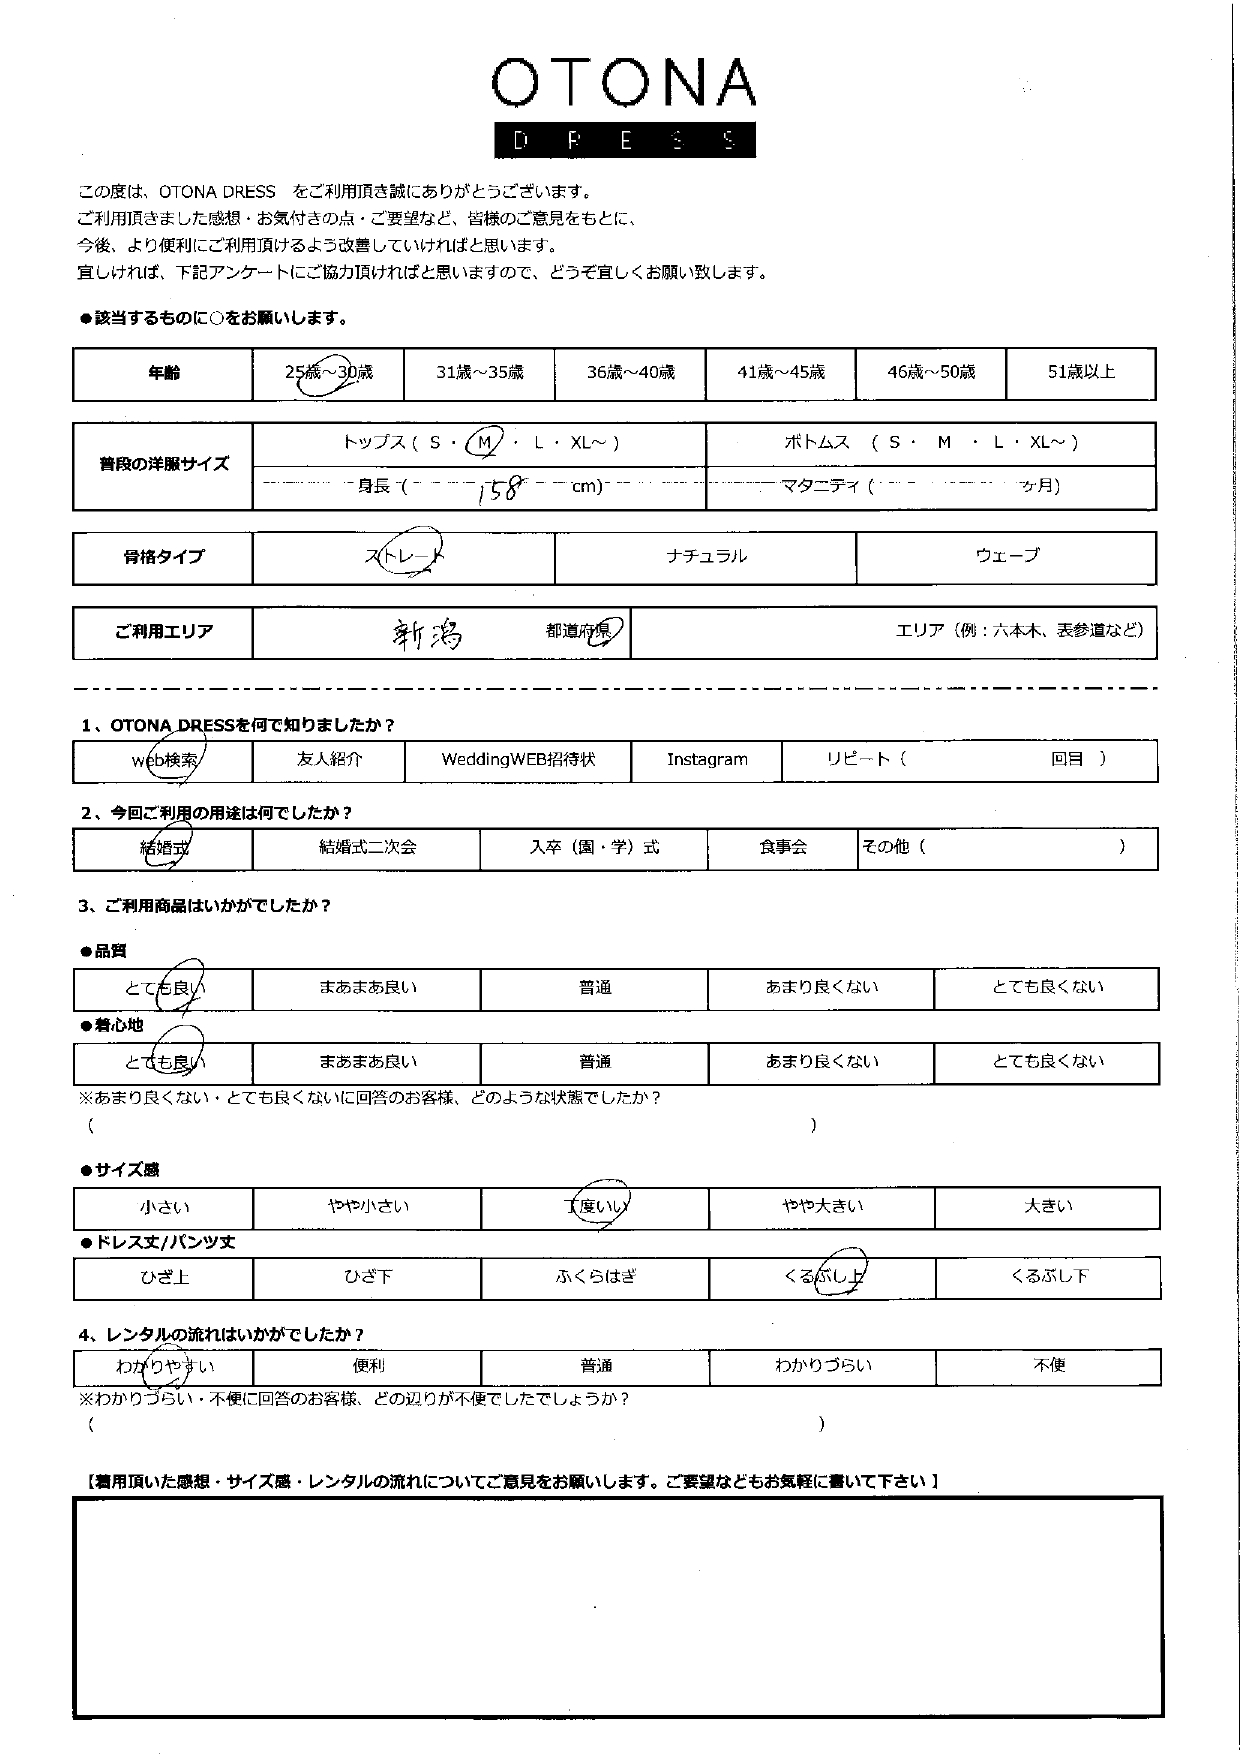 OTONA
DRESS
この度は、OTONA DRESS　をご利用頂き誠にありがとうございます。
ご利用頂きました感想・お気付きの点・ご要望など、皆様のご意見をもとに、
今後、より便利にご利用頂けるよう改善していければと思います。
宜しければ、下記アンケートにご協力頂ければと思いますので、どうぞ宜しくお願い致します。
●該当するものに○をお願いします。
年齢 25歳～30歳 31歳～35歳 36歳～40歳 41歳～45歳 46歳～50歳 51歳以上
普段の洋服サイズ トップス ( S ・ M ・ L ・ XL～ ) ボトムス ( S ・ M ・ L ・ XL～ )
身長 ( 158 cm) マタニティ ( ヶ月)
骨格タイプ ストレート ナチュラル ウェーブ
ご利用エリア 新潟 都道府県 エリア（例：六本木、表参道など）
1、OTONA DRESSを何で知りましたか？
web検索 友人紹介 WeddingWEB招待状 Instagram リピート（ 回目 ）
2、今回ご利用の用途は何でしたか？
結婚式 結婚式二次会 入卒（園・学）式 食事会 その他（ ）
3、ご利用商品はいかがでしたか？
●品質
とても良い まあまあ良い 普通 あまり良くない とても良くない
●着心地
とても良い まあまあ良い 普通 あまり良くない とても良くない
※あまり良くない・とても良くないに回答のお客様、どのような状態でしたか？
（ ）
●サイズ感
小さい やや小さい 丁度いい やや大きい 大きい
●ドレス丈/パンツ丈
ひざ上 ひざ下 ふくらはぎ くるぶし上 くるぶし下
4、レンタルの流れはいかがでしたか？
わかりやすい 便利 普通 わかりづらい 不便
※わかりづらい・不便に回答のお客様、どの辺りが不便でしたでしょうか？
（ ）
【着用頂いた感想・サイズ感・レンタルの流れについてご意見をお願いします。ご要望などもお気軽に書いて下さい 】